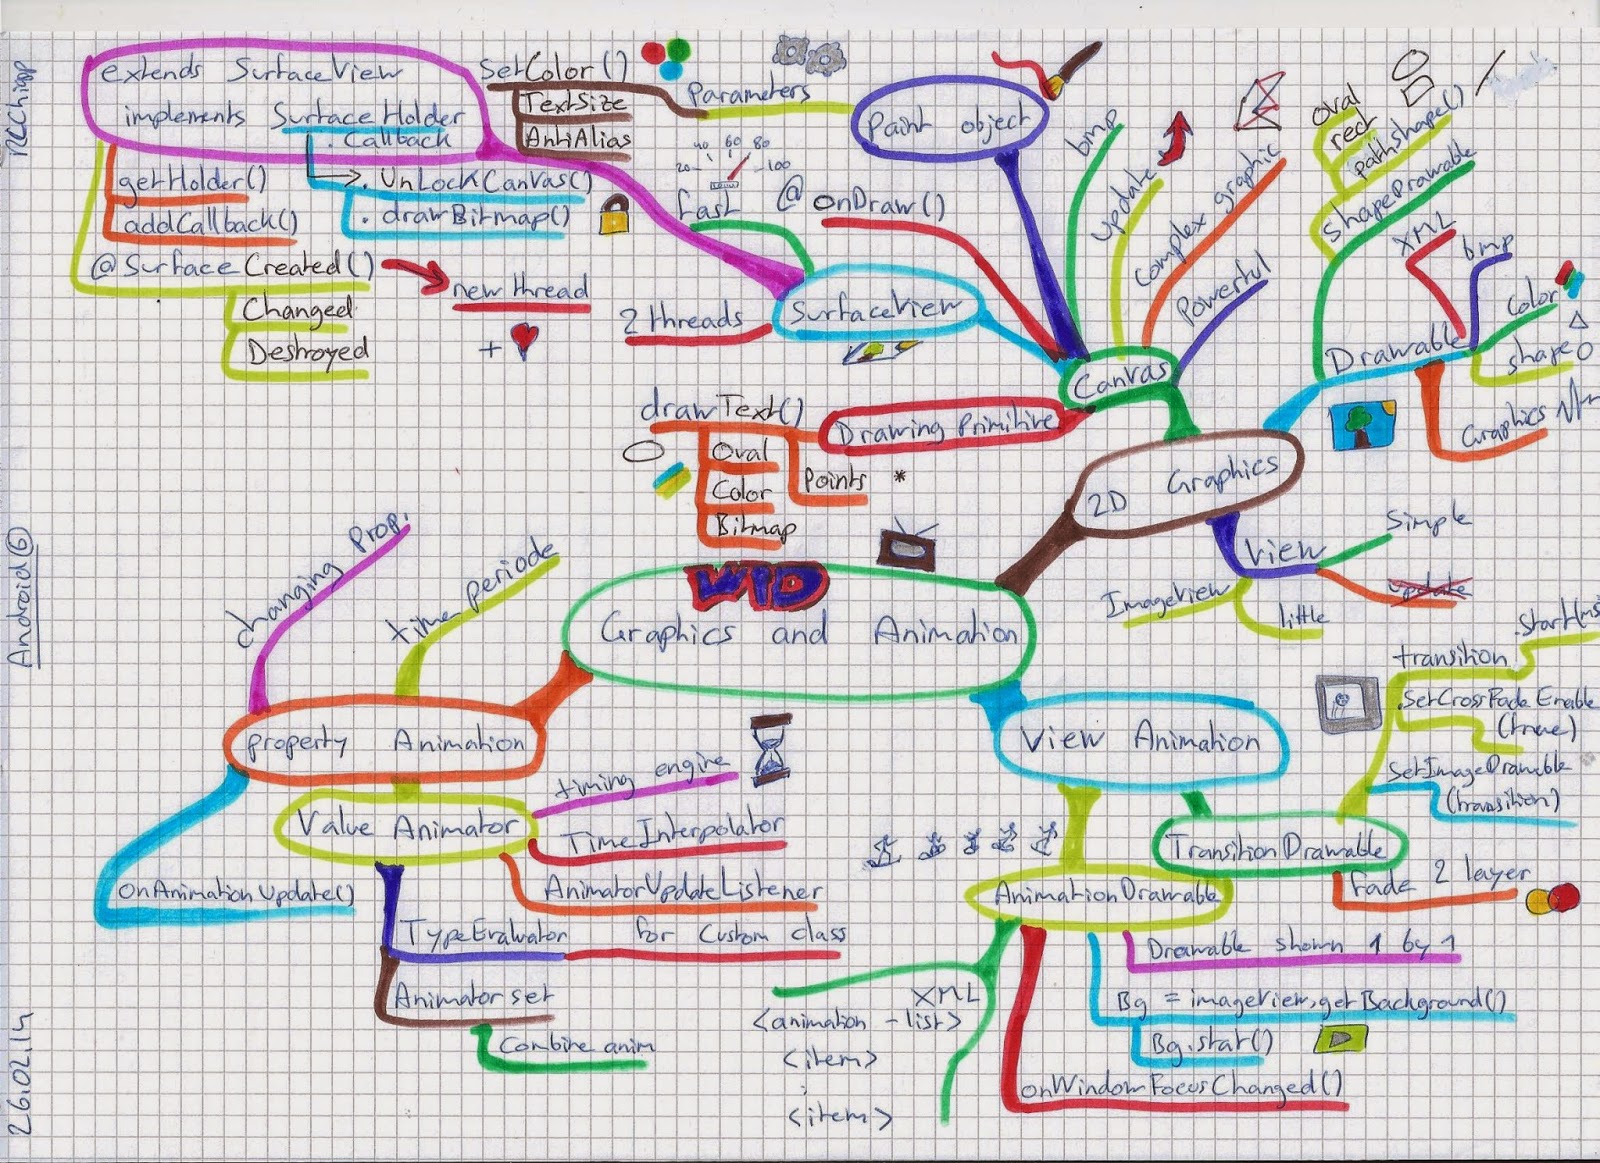 RCChiapp
Android ⑥
26.02.14
extends SurfaceView
implements SurfaceHolder
.Callback
getHolder()
addCallback()
.UnLockCanvas()
.drawBitmap()
@SurfaceCreated()
Changed
Destroyed
new thread
+
SetColor()
TextSize
AntiAlias
Parameters
Paint object
20 40 60 80 100
fast
@ onDraw()
2 threads
SurfaceView
bmp
update
complex graphic
Powerful
Canvas
Drawing Primitive
drawText()
Oval
Color
Bitmap
Points *
oval
rect
pathshape()
ShapeDrawable
XML
bmp
Color
shape
Drawable
Graphics
2D Graphics
View
Simple
update
ImageView
little
WID
Graphics and Animation
changing Prop.
time periode
property Animation
Value Animator
timing engine
TimeInterpolator
AnimatorUpdateListener
onAnimationUpdate()
TypeEvaluator for custom class
Animator set
Combine anim
View Animation
TransitionDrawable
transition
.start(ms
.setCrossFadeEnable
(true)
setImageDrawable
(transition)
fade 2 layer
AnimationDrawable
Drawable shown 1 by 1
Bg = imageView.getBackground()
Bg.start()
onWindowFocusChanged()
XML
<animation-list>
<item>
:
<item>